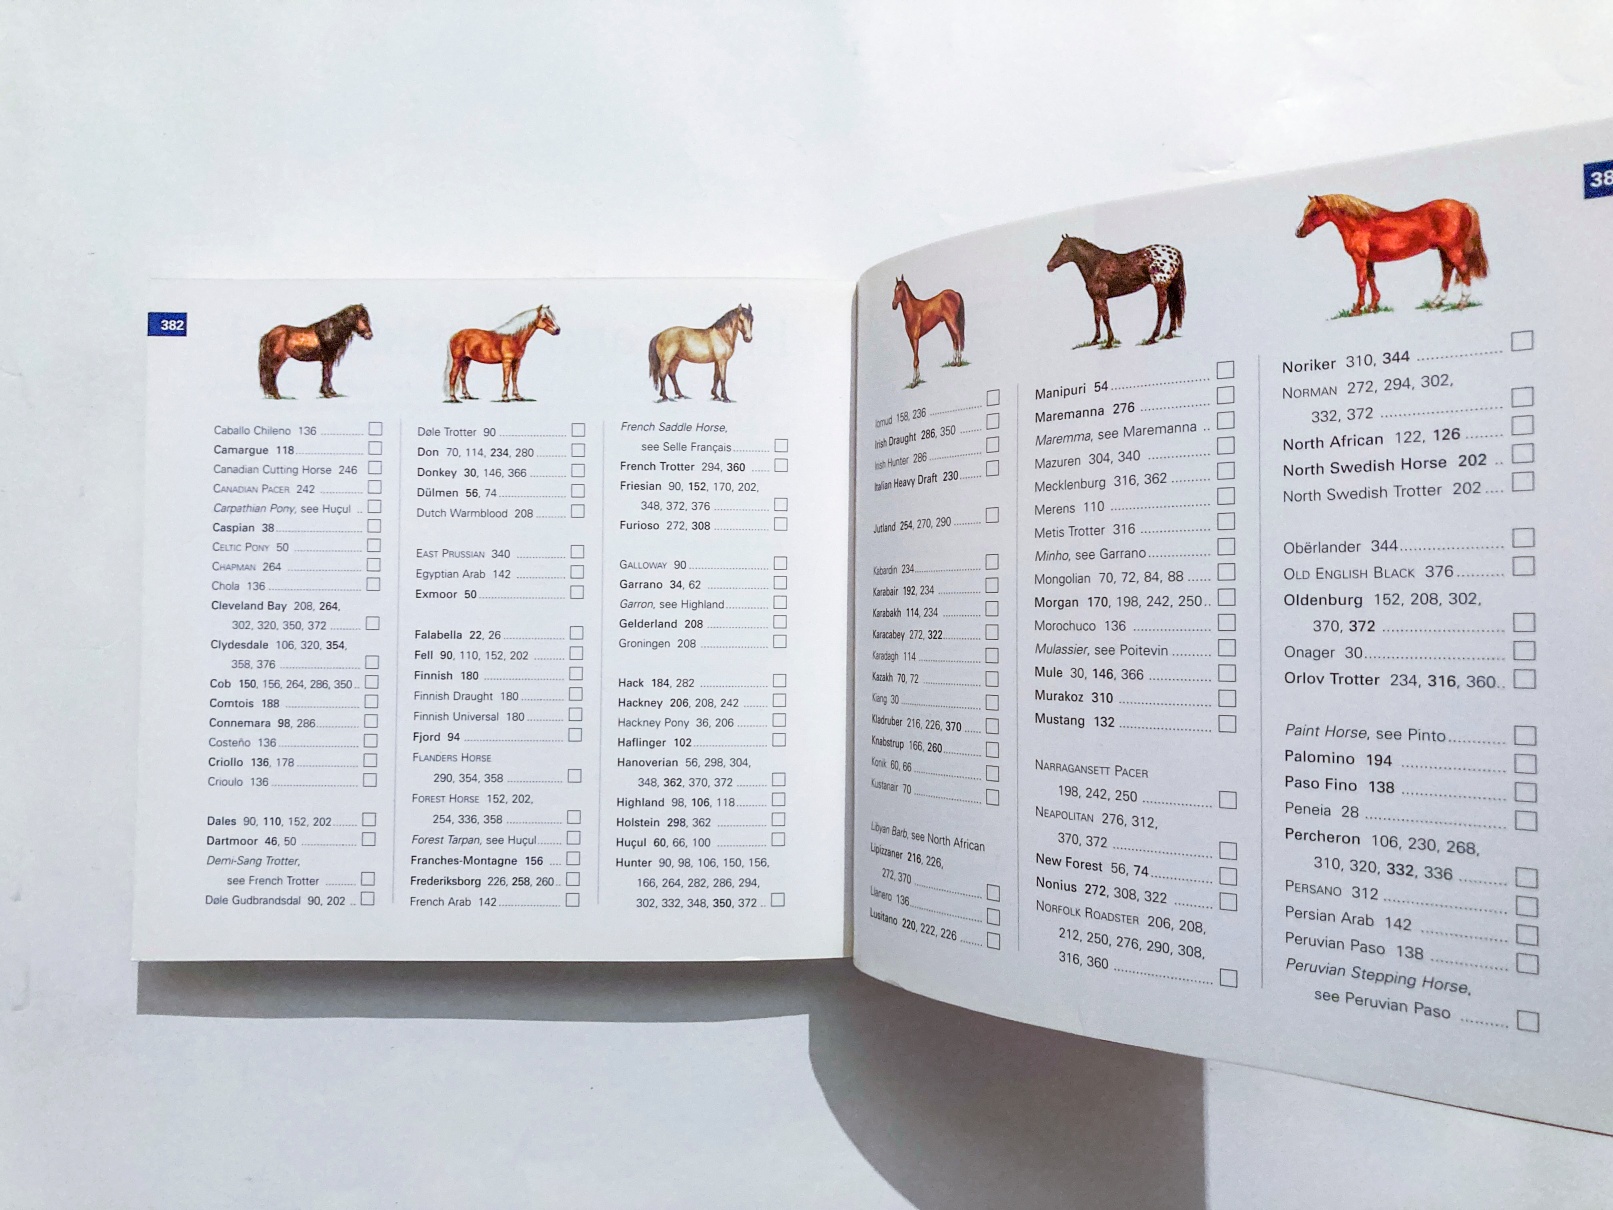 382
Caballo Chileno 136
Camargue 118
Canadian Cutting Horse 246
CANADIAN PACER 242
Carpathian Pony, see Huçul
Caspian 38
CELTIC PONY 50
CHAPMAN 264
Chola 136
Cleveland Bay 208, 264,
302, 320, 350, 372
Clydesdale 106, 320, 354,
358, 376
Cob 150, 156, 264, 286, 350
Comtois 188
Connemara 98, 286
Costeño 136
Criollo 136, 178
Crioulo 136
Dales 90, 110, 152, 202
Dartmoor 46, 50
Demi-Sang Trotter,
see French Trotter
Døle Gudbrandsdal 90, 202
Døle Trotter 90
Don 70, 114, 234, 280
Donkey 30, 146, 366
Dülmen 56, 74
Dutch Warmblood 208
EAST PRUSSIAN 340
Egyptian Arab 142
Exmoor 50
Falabella 22, 26
Fell 90, 110, 152, 202
Finnish 180
Finnish Draught 180
Finnish Universal 180
Fjord 94
FLANDERS HORSE
290, 354, 358
FOREST HORSE 152, 202,
254, 336, 358
Forest Tarpan, see Huçul
Franches-Montagne 156
Frederiksborg 226, 258, 260
French Arab 142
French Saddle Horse,
see Selle Français
French Trotter 294, 360
Friesian 90, 152, 170, 202,
348, 372, 376
Furioso 272, 308
GALLOWAY 90
Garrano 34, 62
Garron, see Highland
Gelderland 208
Groningen 208
Hack 184, 282
Hackney 206, 208, 242
Hackney Pony 36, 206
Haflinger 102
Hanoverian 56, 298, 304,
348, 362, 370, 372
Highland 98, 106, 118
Holstein 298, 362
Huçul 60, 66, 100
Hunter 90, 98, 106, 150, 156,
166, 264, 282, 286, 294,
302, 332, 348, 350, 372
38
Iomud 158, 236
Irish Draught 286, 350
Irish Hunter 286
Italian Heavy Draft 230
Jutland 254, 270, 290
Kabardin 234
Karabair 192, 234
Karabakh 114, 234
Karacabey 272, 322
Karadagh 114
Kazakh 70, 72
Kiang 30
Kladruber 216, 226, 370
Knabstrup 166, 260
Konik 60, 66
Kustanair 70
Libyan Barb, see North African
Lipizzaner 216, 226,
272, 370
Llanero 136
Lusitano 220, 222, 226
Manipuri 54
Maremanna 276
Maremma, see Maremanna
Mazuren 304, 340
Mecklenburg 316, 362
Merens 110
Metis Trotter 316
Minho, see Garrano
Mongolian 70, 72, 84, 88
Morgan 170, 198, 242, 250
Morochuco 136
Mulassier, see Poitevin
Mule 30, 146, 366
Murakoz 310
Mustang 132
NARRAGANSETT PACER
198, 242, 250
NEAPOLITAN 276, 312,
370, 372
New Forest 56, 74
Nonius 272, 308, 322
NORFOLK ROADSTER 206, 208,
212, 250, 276, 290, 308,
316, 360
Noriker 310, 344
NORMAN 272, 294, 302,
332, 372
North African 122, 126
North Swedish Horse 202
North Swedish Trotter 202
Obërlander 344
OLD ENGLISH BLACK 376
Oldenburg 152, 208, 302,
370, 372
Onager 30
Orlov Trotter 234, 316, 360
Paint Horse, see Pinto
Palomino 194
Paso Fino 138
Peneia 28
Percheron 106, 230, 268,
310, 320, 332, 336
PERSANO 312
Persian Arab 142
Peruvian Paso 138
Peruvian Stepping Horse,
see Peruvian Paso